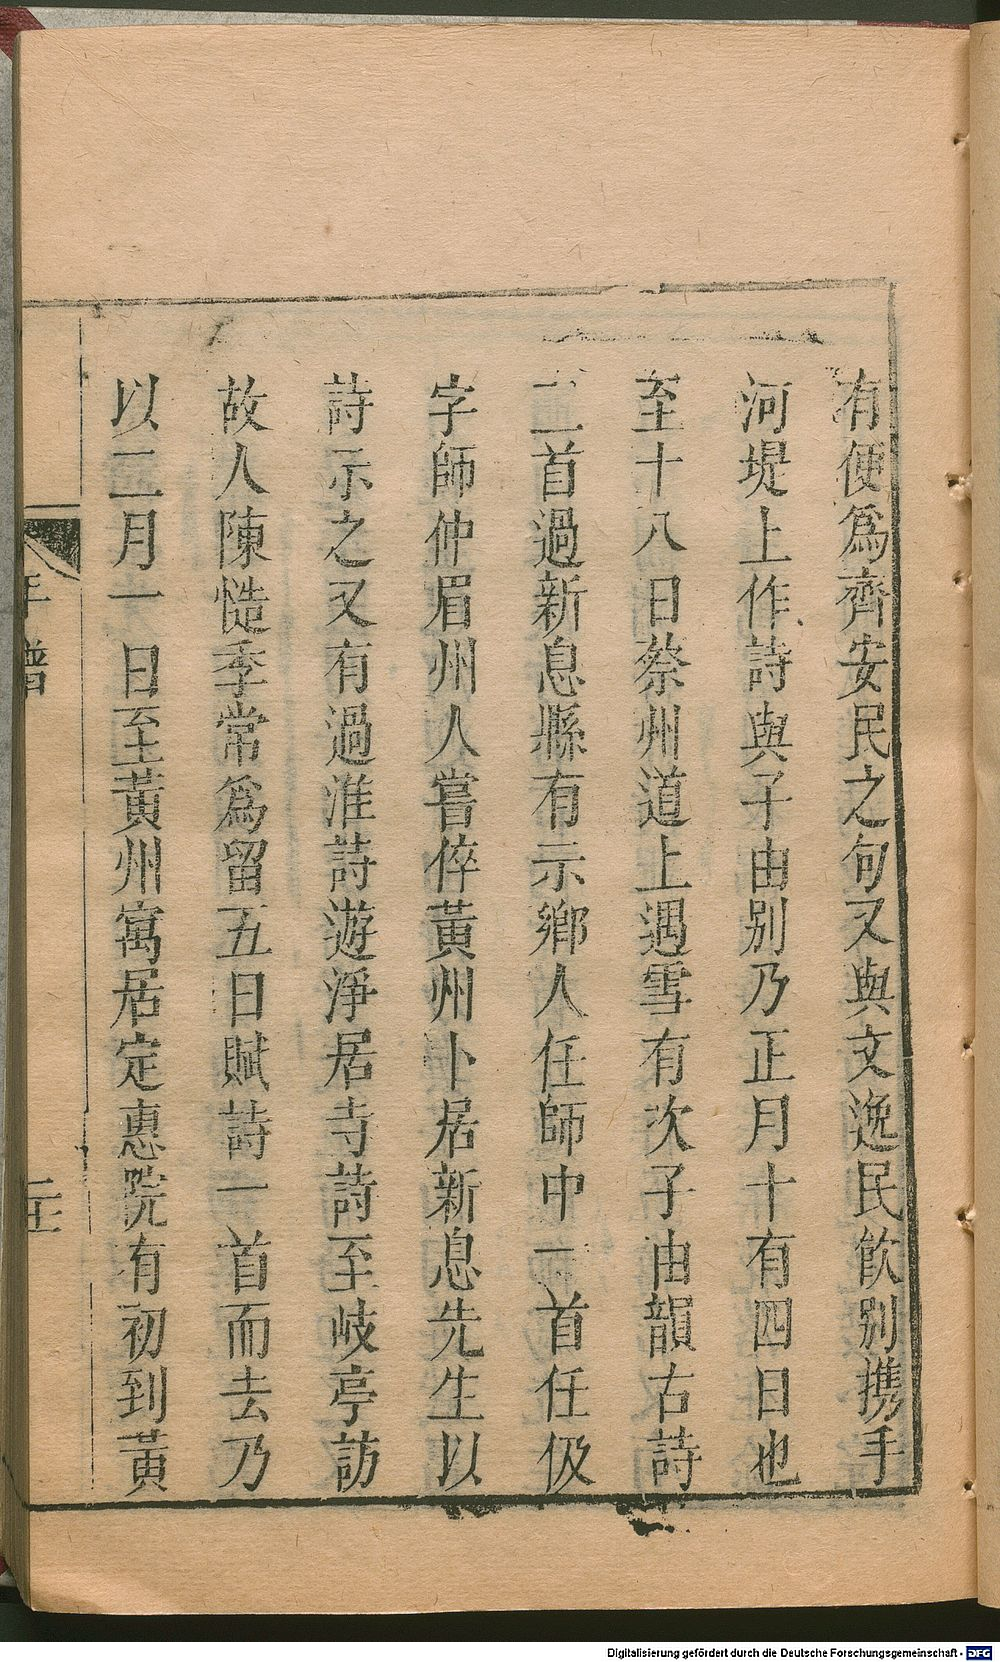 有便爲齊安民之句又與文逸民飲别携手
河堤上作詩與子由别乃正月十有四日也
至十八日蔡州道上遇雪有次子由韻古詩
二首過新息縣有示鄉人任師中一首任伋
字師仲眉州人嘗倅黃州卜居新息先生以
詩示之又有過淮詩遊淨居寺詩至岐亭訪
故人陳慥季常爲留五日賦詩一首而去乃
以二月一日至黃州寓居定惠院有初到黃
年譜
Digitalisierung gefördert durch die Deutsche Forschungsgemeinschaft - DFG